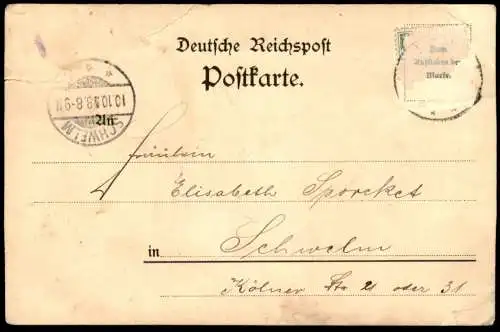 Deutsche Reichspost
Postkarte.
Zum
Aufkleben der
Marke.
SCHWELM
An
Fräulein
Elisabeth
in Schwelm
Kölner Str 21 oder 31